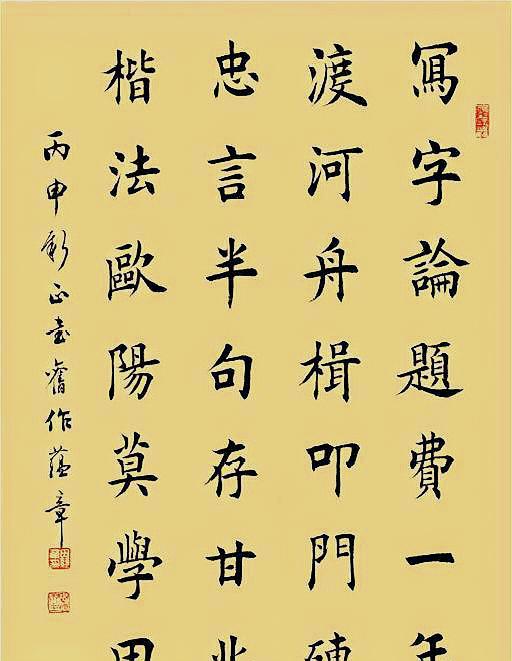 冩字論題費一年
渡河舟楫叩門
忠言半句存甘
楷法歐陽莫學
丙申新正書舊作蘊章